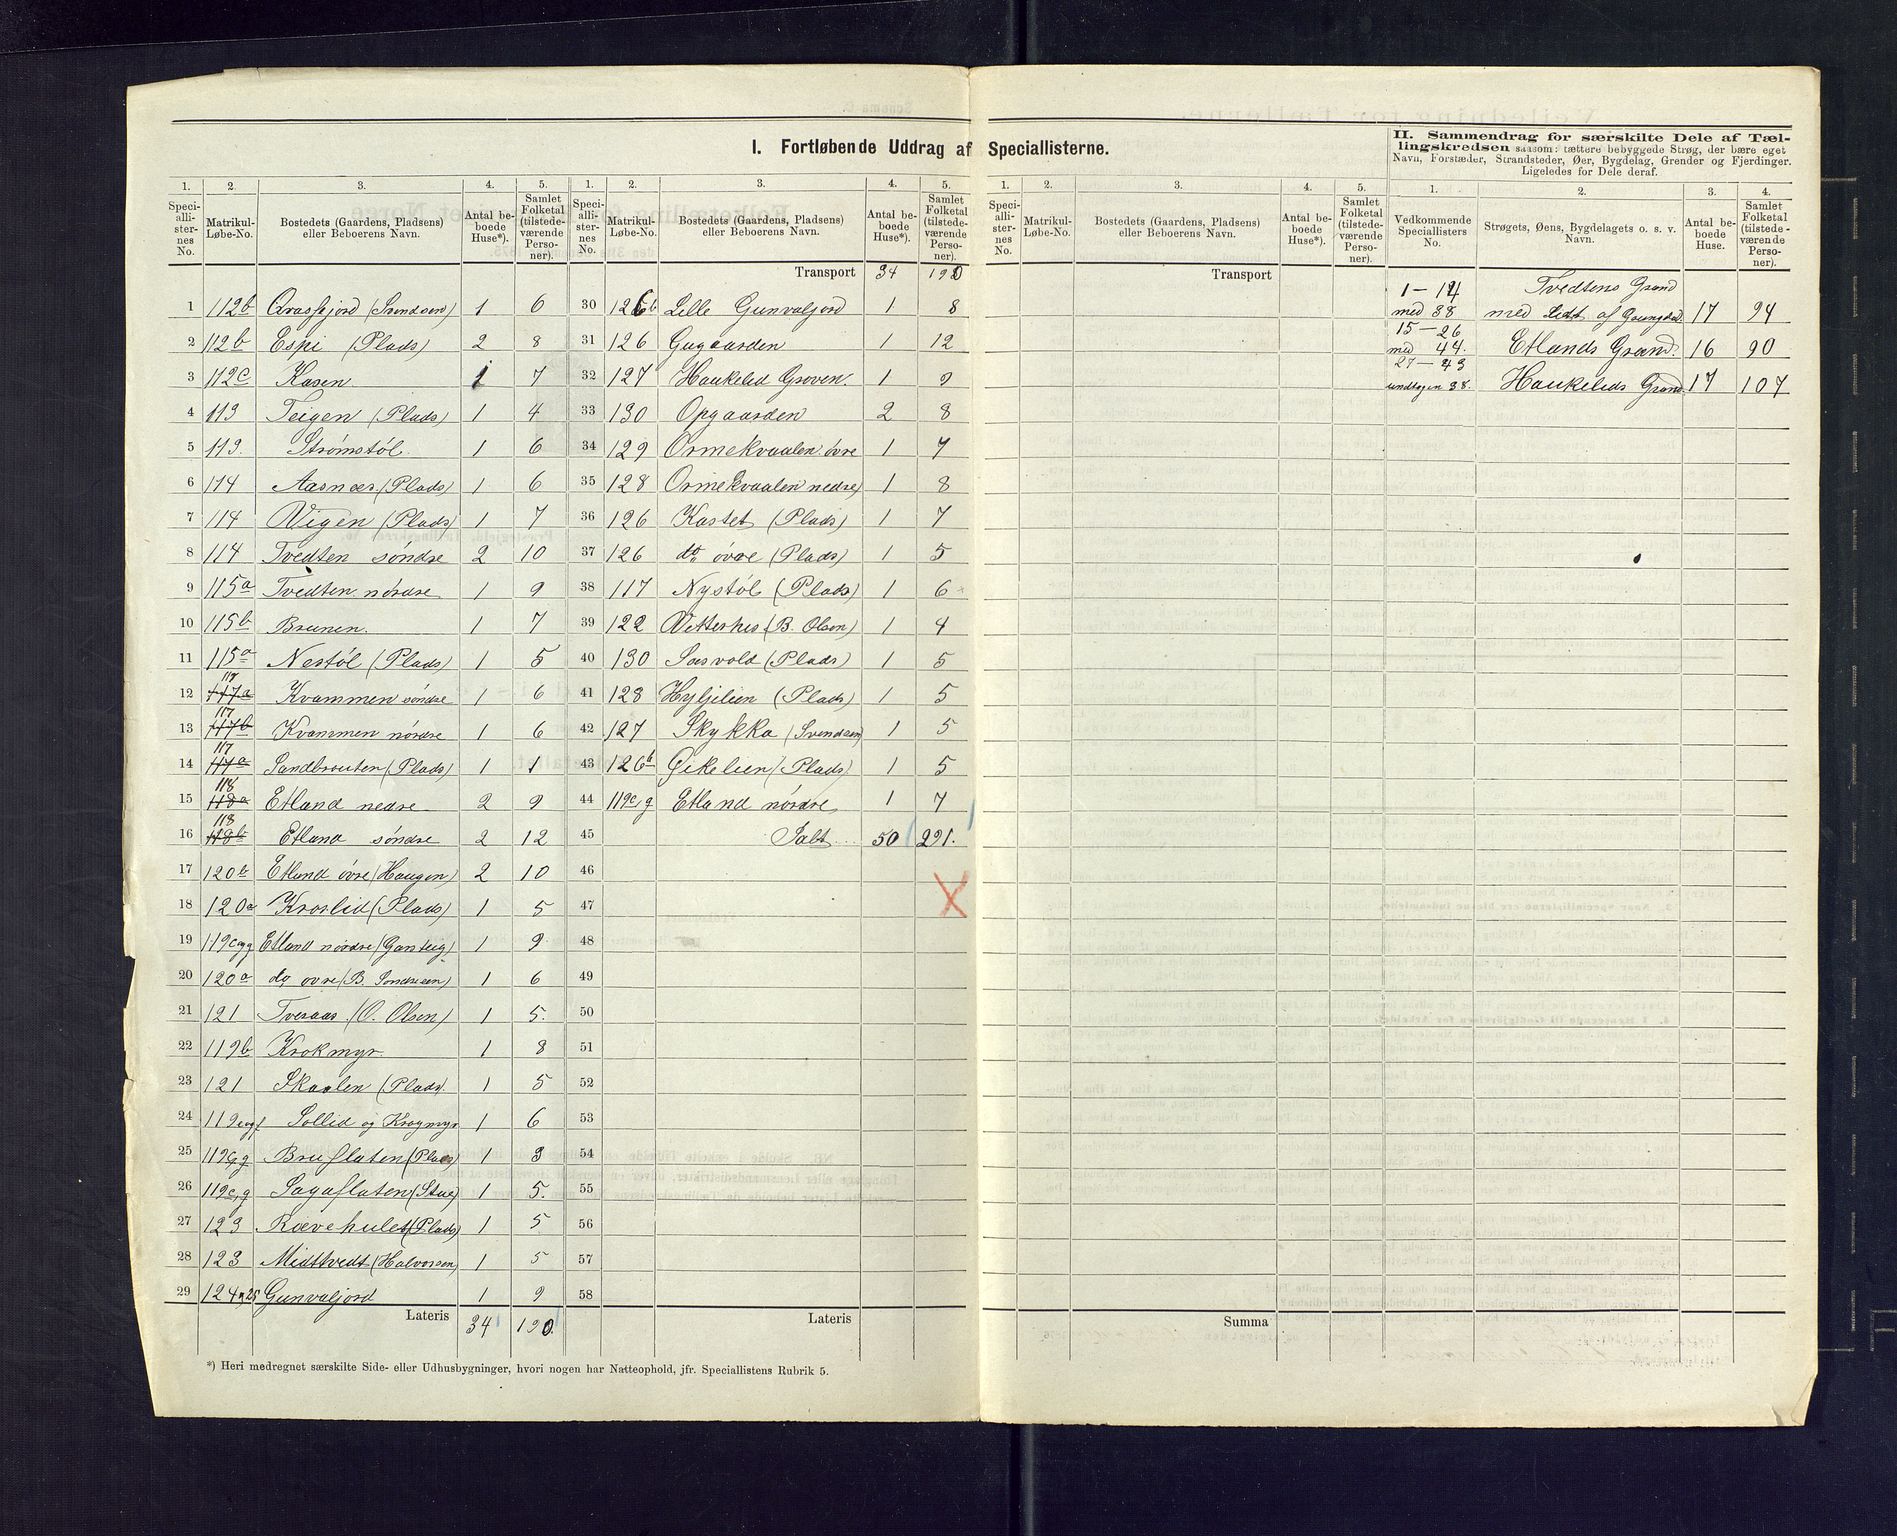 I. Fortløbende Uddrag af Speciallisterne.
II. Sammendrag for særskilte Dele af Tællingskredsen saasom: tættere bebyggede Strøg, der bære eget Navn, Forstæder, Strandsteder, Øer, Bygdelag, Grender og Fjerdinger. Ligeledes for Dele deraf.
1. 2. 3. 4. 5. 1. 2. 3. 4. 5. 1. 2. 3. 4. 5. 1. 2. 3. 4.
Speciallisternes No. Matrikul-Løbe-No. Bostedets (Gaardens, Pladsens) eller Beboerens Navn. Antal beboede Huse*). Samlet Folketal (tilstedeværende Personer).
Speciallisternes No. Matrikul-Løbe-No. Bostedets (Gaardens, Pladsens) eller Beboerens Navn. Antal beboede Huse*). Samlet Folketal (tilstedeværende Personer).
Speciallisternes No. Matrikul-Løbe-No. Bostedets (Gaardens, Pladsens) eller Beboerens Navn. Antal beboede Huse*). Samlet Folketal (tilstedeværende Personer).
Vedkommende Speciallisters No. Strøgets, Øens, Bygdelagets o. s. v. Navn. Antal beboede Huse. Samlet Folketal (tilstedeværende Personer).
1 112b (Svendsen) 1 6
2 112b Espi (Plads) 2 8
3 112c Kasen 1 7
4 113 Teigen (Plads) 1 4
5 113. Strømstöl. 1 6
6 114 Aasnes (Plads) 1 6
7 114 Vigen (Plads) 1 7
8 114 Tvedten söndre 2 10
9 115a Tvedten nördre 1 9
10 115b Brunen. 1 7
11 115a Nestöl (Plads) 1 5
12 117 117a Kvammen söndre 1 6
13 117 117b Kvammen nördre 1 6
14 117 117a Sandbrouten (Plads) 1 1
15 118 118a Etland nedre 2 9
16 118 118b Etland söndre 2 12
17 120b Etland övre (Haugen) 2 10
18 120a Kroslid (Plads) 1 5
19 119c og g Etland nördre (Gonteig) 1 9
20 120a do ovre (B. Sondresen) 1 6
21 121 Tveraas (O. Olsen) 1 5.
22 119b Krokmyr. 1 8
23 121 Skaalen (Plads) 1 5
24 119 Sollid og Krogmyr 1 6
25 119c, g Bruflaten (Plads) 1 3
26 119c, g Sagaflaten (Stue) 1 5.
27 123 Rævehulet (Plads) 1 5
28 123 Midttvedt (Halvorsen) 1 5
29 124 og 25 Gunvaljord 1 9
Lateris 34 190
Transport 34 190
30 126b Lille Gunvaljord 1 8
31 126 Gugaarden 1 12
32 127 Haukelid Groven. 1 9
33 130 Opgaarden 2 8
34 129 Ormekvaalen övre 1 7
35 128 Ormekvaalen nedre 1 8
36 126 Kastet (Plads) 1 7
37 126 do övre (Plads) 1 5
38 117 Nystöl (Plads) 1 6
39 122 (B. Olsen) 1 4
40 130 Sosvold (Plads) 1 5
41 128 Hyljelien (Plads) 1 5
42 127 Skykka (Svendsen) 1 5
43 126b Eikelien (Plads) 1 5
44 119c, g Etland nördre 1 7
45 Ialt... 50 291.
46
47
48
49
50
51
52
53
54
55
56
57
58
Lateris
Transport
Summa
1–14 med 38 Tvedtens Grand med 17 94
15–26 med 44. Etlands Grand. 16 90
27–43 undtagen 38. Haukelids Grand 17 107
*) Heri medregnet særskilte Side- eller Udhusbygninger, hvori nogen har Natteophold, jfr. Speciallistens Rubrik 5.